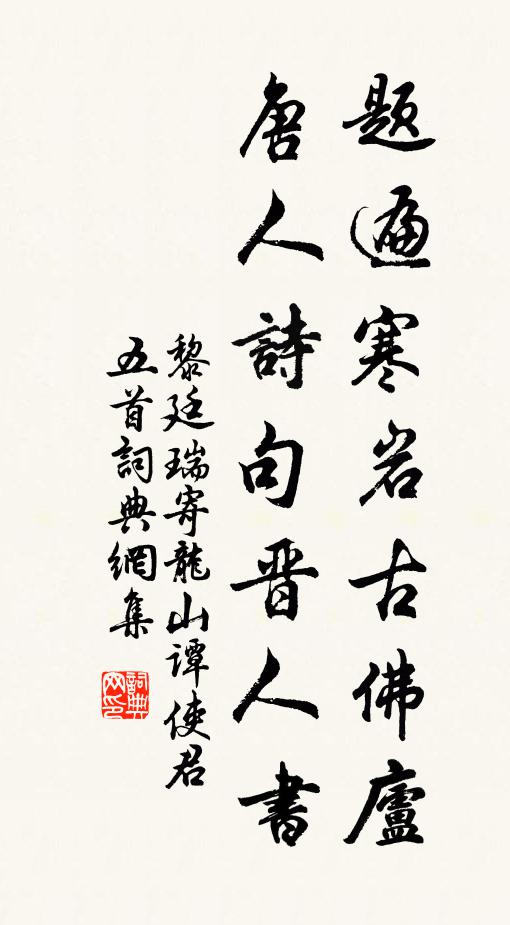 題遍寒岩古佛廬
唐人詩句晋人書
黎廷瑞寄龍山譚使君
五首詞典網集
詞典网印